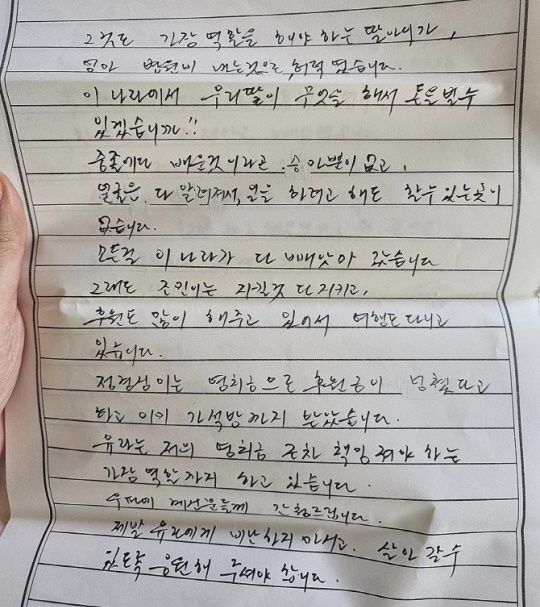 그것도 가장 역할을 해야 하는 딸아이가,
엄마 병원비 내는것으로 허락 됬습니다.
이 나라에서 우리딸이 무엇을 해서 돈을 벌수
있겠습니까!!
중졸에다 배운것이라곤 승마뿐이 없고,
얼굴은 다 알려져서, 일을 하려고 해도 할수 있는곳이
없습니다.
모든걸 이 나라가 다 빼앗아 갔습니다
그래도 조민이는 지킬것 다 지키고,
후원도 많이 해주고 있어서 여행도 다니고
있습니다.
정경심이는 영치금으로 후원금이 넘쳤다고
하고 이미 가석방까지 받았습니다.
유라는 저의 영치금 조차 책임져야 하는
가장 역할까지 하고 있습니다.
우파에 계신분들께 간청드립니다.
제발 유라에게 비난하지 마시고, 살아 갈수
있도록 응원해 주셔야 합니다.